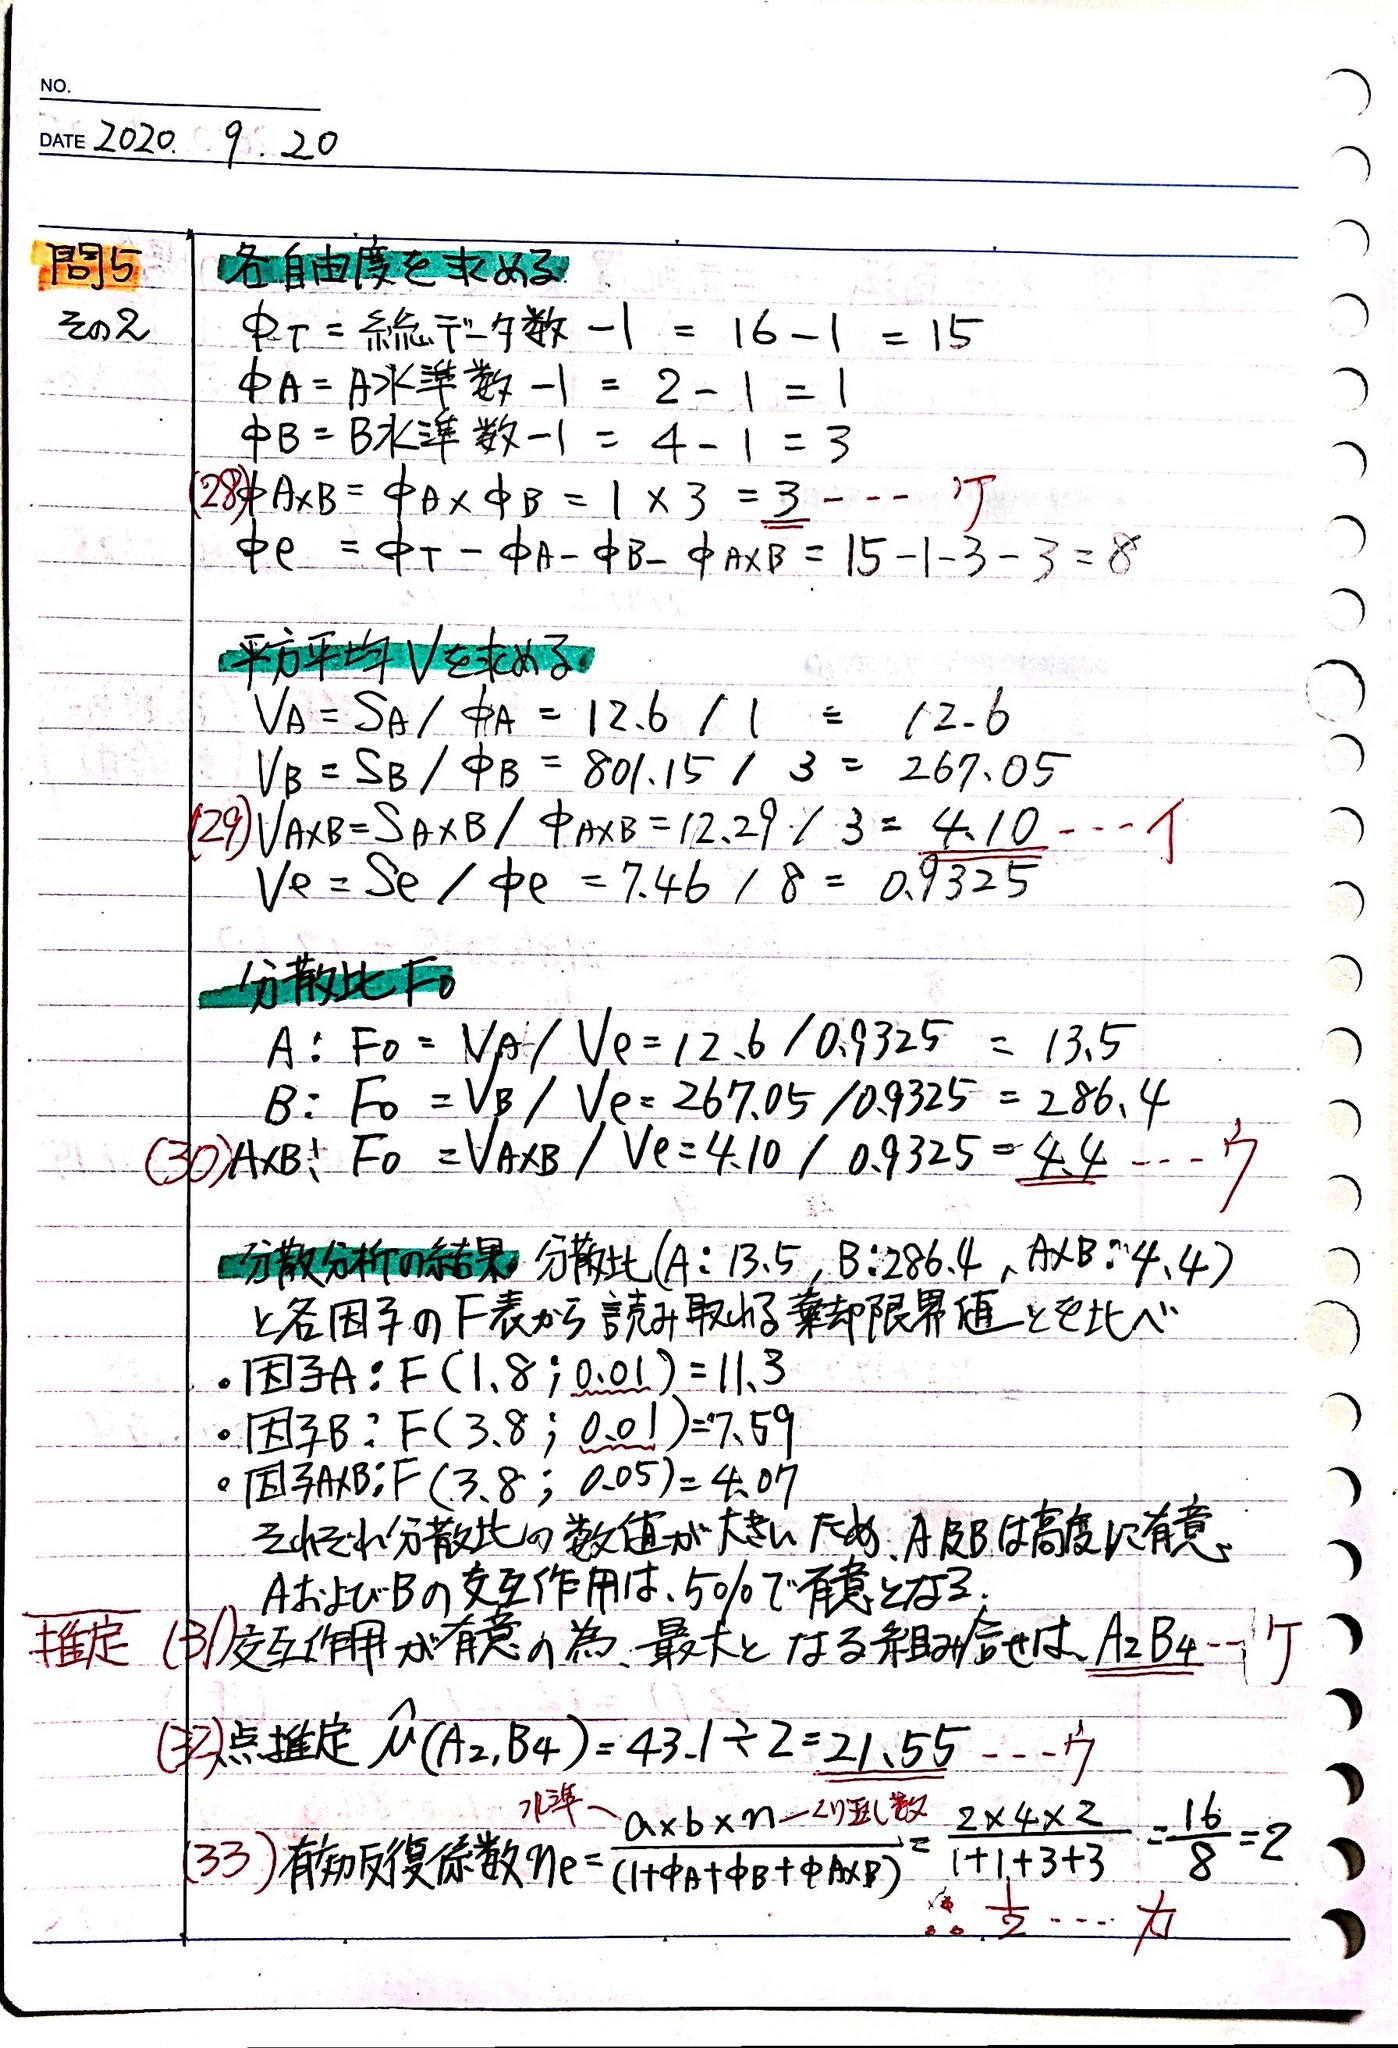 NO.
DATE 2020. 9. 20
問5 各自由度を求める
その2
ΦT = 総データ数 -1 = 16-1 = 15
ΦA = A水準数 -1 = 2-1 = 1
ΦB = B水準数-1 = 4-1 = 3
(28) ΦA×B = ΦA×ΦB = 1×3 = 3 ----
Φe = ΦT - ΦA- ΦB- ΦA×B = 15-1-3-3=8
平方平均Vを求める
VA = SA / ΦA = 12.6 / 1 = 12.6
VB = SB / ΦB = 801.15 / 3 = 267.05
(29) VA×B=SA×B / ΦA×B=12.29 / 3 = 4.10 ----イ
Ve = Se / Φe = 7.46 / 8 = 0.9325
分散比 F0
A: F0 = VA / Ve = 12.6 / 0.9325 = 13.5
B: F0 = VB / Ve = 267.05 / 0.9325 = 286.4
(30) A×B: F0 = VA×B / Ve = 4.10 / 0.9325 = 4.4 ----ウ
分散分析の結果。分散比(A:13.5, B:286.4, A×B:4.4)
と各因子のF表から読み取れる棄却限界値とを比べ
・因子A: F(1.8; 0.01)=11.3
・因子B: F(3.8; 0.01)=7.59
・因子A×B: F(3.8; 0.05)=4.07
それぞれ分散比の数値が大きいため、A及Bは高度に有意。
AおよびBの交互作用は、5%で有意となる。
推定 (31) 交互作用が有意の為、最大となる組み合せは、A2B4---ケ
(32) 点推定 μ̂(A2,B4) = 43.1÷2=21.55 ----ウ
水準 くり返し数
(33) 有効反復係数 ne = a×b×n / (1+ΦA+ΦB+ΦA×B) = 2×4×2 / 1+1+3+3 = 16/8 = 2
∴ 1/2 ---- カ